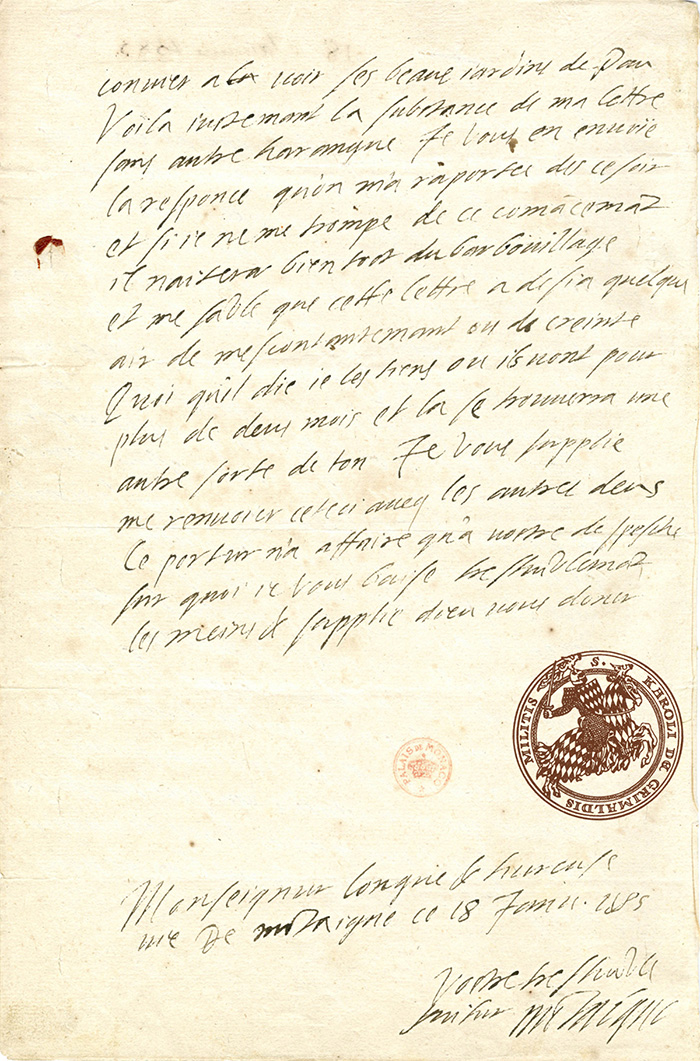 convier a la voir ses beaus iardins de Pau
Voila iustemant la substance de ma lettre
sans autre harangue Je vous en envoïe
la responce qu'on m'a raportee des ce soir
et si ie ne me trompe de ce comācemāt
il naitera bien tost du barbouillage
et me sāble que cette lettre a desia quelque
air de mescontantemant ou de creinte
Quoi qu'il die ie les tiens ou ils vont pour
plus de deus mois et la se trouverra une
autre sorte de ton Je vous supplie
me renvoier ceteci aveq les autres deus
Le portur n'a affaire qu'a vostre despesche
sur quoi ie vous baise treshūblemāt
les meins & supplie dieu vous doner
S. KAROLI DE GRIMALDIS MILITIS
PALAIS DE MONACO
Monseignur longue & hureuse
vie De mōtaigne ce 18 Janv. 1585
Vostre treshūble
servitur mōtaigne